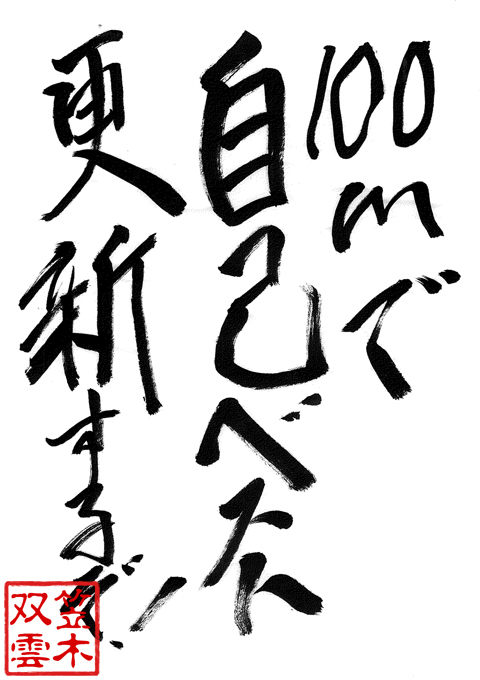 100mで
自己ベスト
更新するぞ!
笠木
双雲